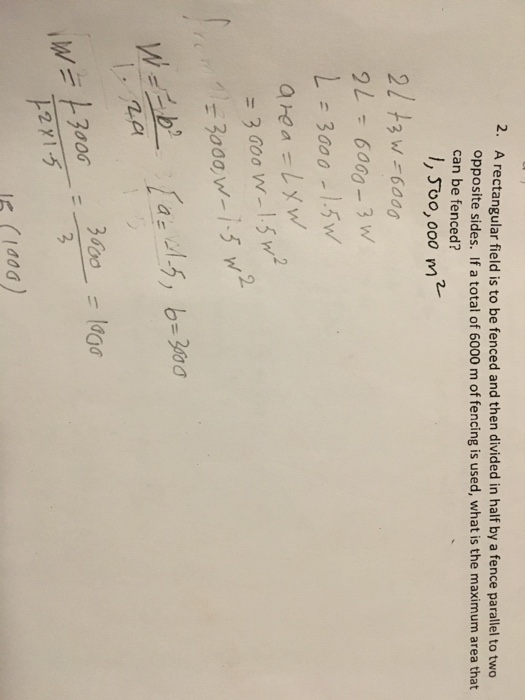 2. A rectangular field is to be fenced and then divided in half by a fence parallel to two
opposite sides. If a total of 6000 m of fencing is used, what is the maximum area that
can be fenced?
1,500,000 m²
2L + 3W = 6000
2L = 6000 - 3W
L = 3000 - 1.5W
area = L × W
= 3000W - 1.5W²
= 3000W - 1.5W²
W = -b / 2a [a = -1.5, b = 3000
W = -3000 / -2×1.5 = 3000 / 3 = 1000
(1000)